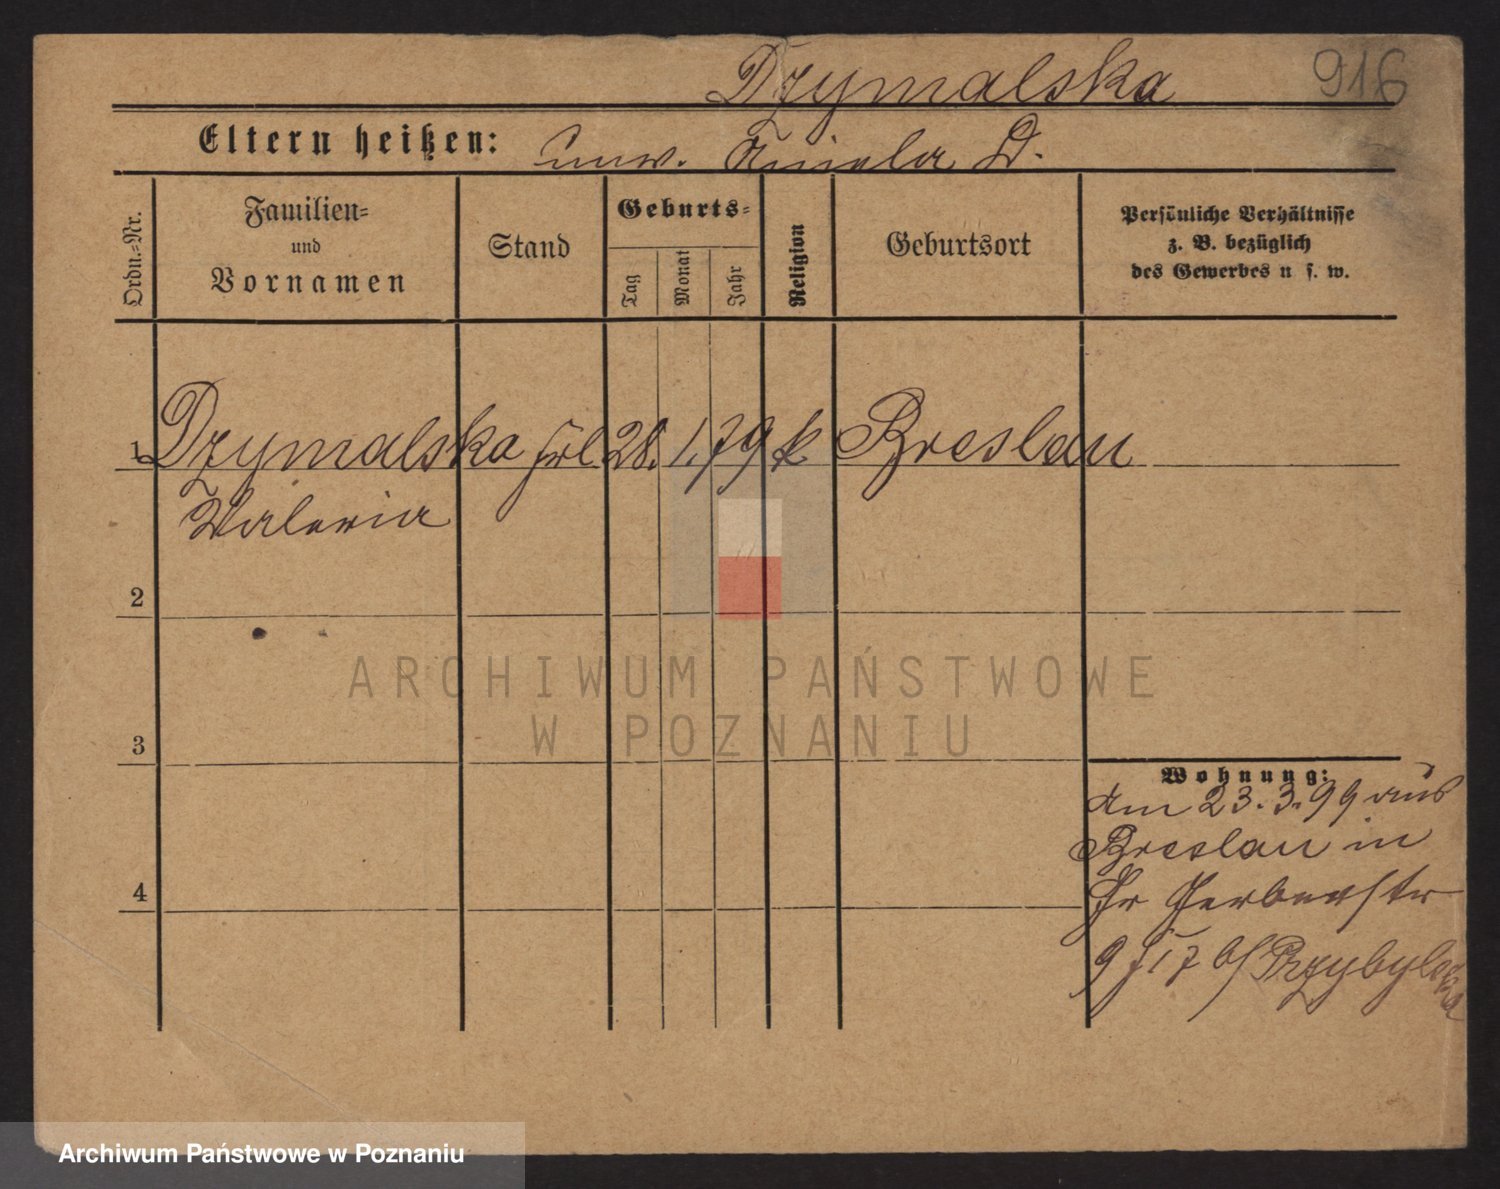 Dzymalska
916
Eltern heißen: unv. Aniela D.
Ordn.=Nr.
Familien=
und
Vornamen
Stand
Geburts=
Tag
Monat
Jahr
Religion
Geburtsort
Persönliche Verhältnisse
z. B. bezüglich
des Gewerbes u s. w.
1 Dzymalska Frl. 28. 1. 79 k Breslau
Valeria
2
3
4
Wohnung:
Am 23. 3. 99 aus
Breslau in
Gr Gerberstr
9 b/ Przybylska
ARCHIWUM PAŃSTWOWE
W POZNANIU
Archiwum Państwowe w Poznaniu